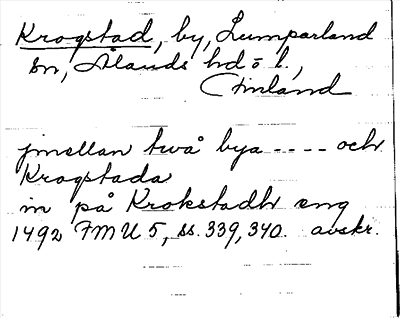 Krogstad, by, Lumparland
sn, Ålands hd o l.,
Finland
jmellan twå bya ---- och
Krogstada
in på Krokstadh eng
1492 FMU 5, ss. 339, 340. avskr.